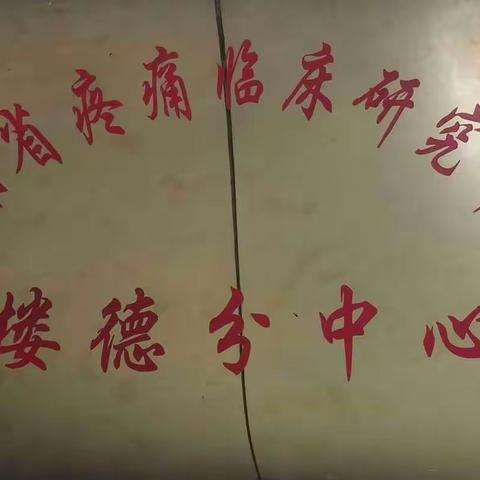 省疼痛临床研究
楼德分中心